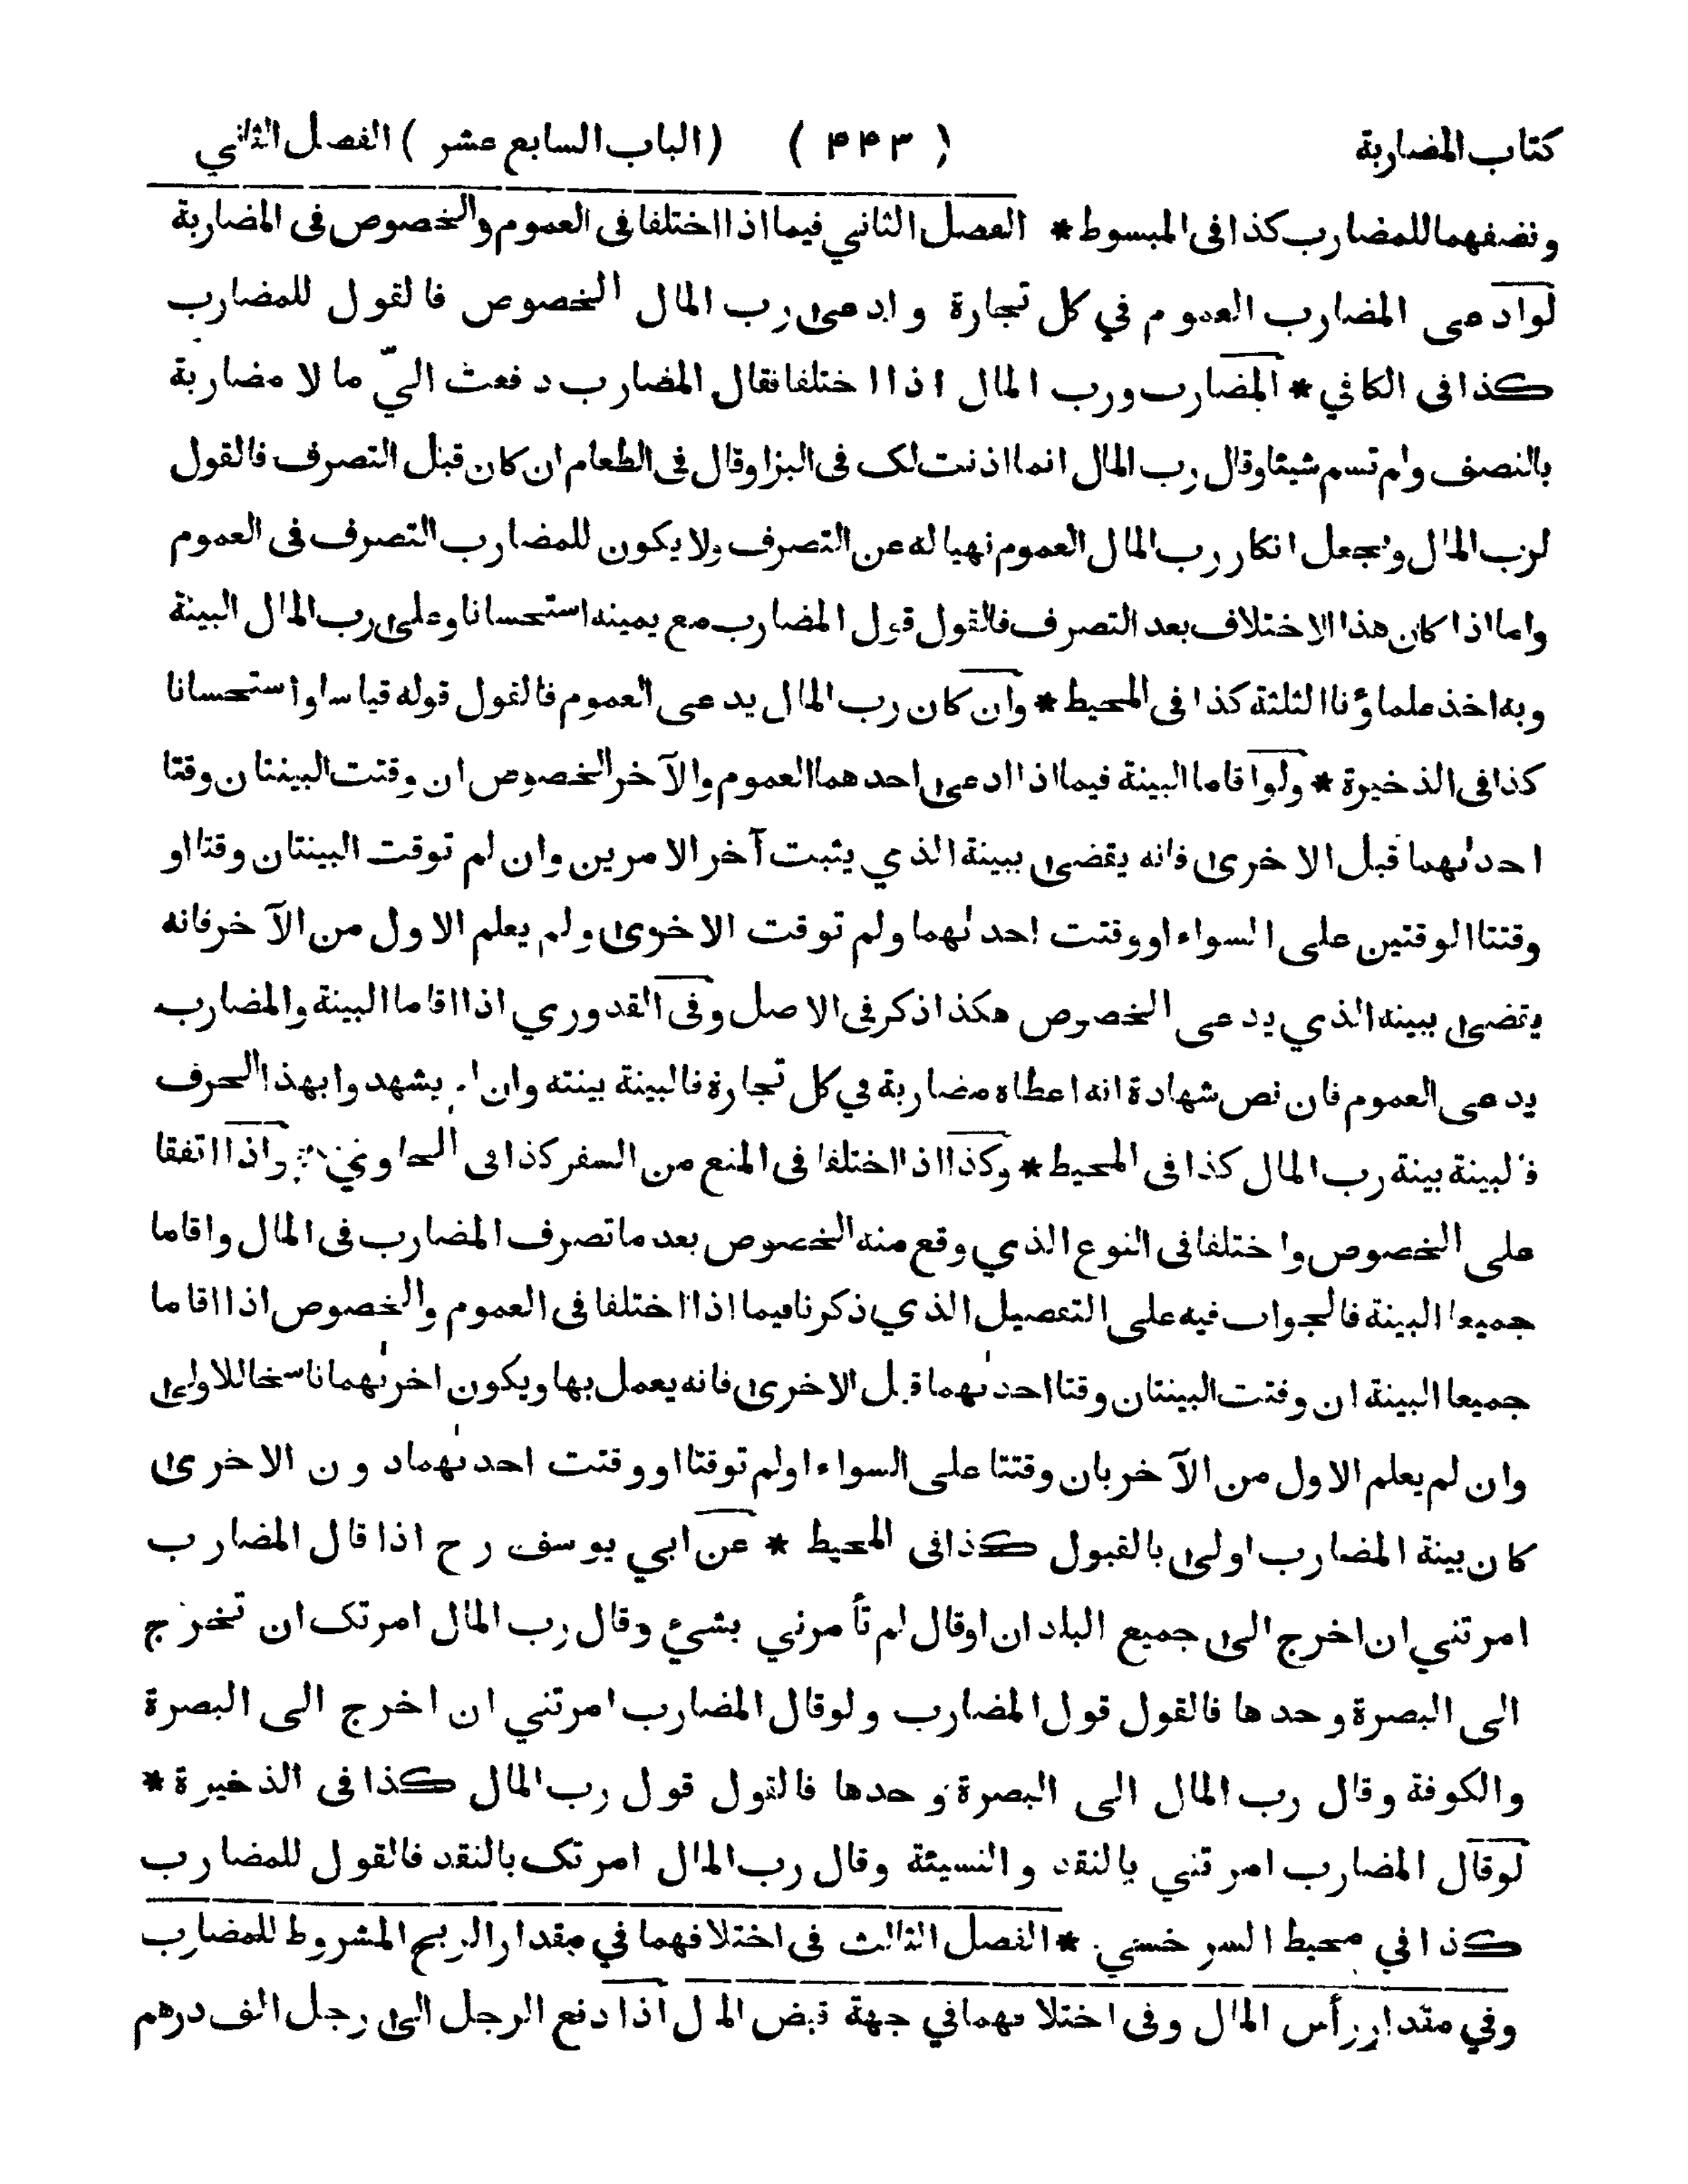 كتاب المضاربة ( ۴۴۳ ) ( الباب السابع عشر ) الفصل الثاني
ونصفهما للمضارب كذا فى المبسوط * الفصل الثاني فيما اذا اختلفا فى العموم والخصوص فى المضاربة
لو ادعى المضارب العموم في كل تجارة وادعى رب المال الخصوص فالقول للمضارب
كذا فى الكافي * المضارب ورب المال اذا اختلفا فقال المضارب دفعت اليّ مالا مضاربة
بالنصف ولم تسم شيئا وقال رب المال انما اذنت لك فى البز او قال فى الطعام ان كان قبل التصرف فالقول
لرب المال ويجعل انكار رب المال العموم نهيا له عن التصرف ولا يكون للمضارب التصرف فى العموم
واما اذا كان هذا الاختلاف بعد التصرف فالقول قول المضارب مع يمينه استحسانا وعلى رب المال البينة
وبه اخذ علماؤنا الثلثة كذا فى المحيط * وان كان رب المال يدعى العموم فالقول قوله قياسا واستحسانا
كذا فى الذخيرة * ولو اقاما البينة فيما اذا ادعى احدهما العموم والآخر الخصوص ان وقتت البينتان وقتا
احدٰهما قبل الاخرى فانه يقضى ببينة الذي يثبت آخر الامرين وان لم توقت البينتان وقتا او
وقتتا الوقتين على السواء او وقتت احدٰهما ولم توقت الاخرى ولم يعلم الاول من الآخر فانه
يقضى ببينه الذي يدعى الخصوص هكذا ذكر فى الاصل وفى القدوري اذا اقاما البينة والمضارب
يدعى العموم فان نص شهادة انه اعطاه مضاربة في كل تجارة فالبينة بينته وان لم يشهدوا بهذا الحرف
فالبينة بينة رب المال كذا فى المحيط * وكذا اذا اختلفا فى المنع من السفر كذا فى الحاوي * واذا اتفقا
على الخصوص واختلفا فى النوع الذي وقع منه الخصوص بعد ما تصرف المضارب فى المال واقاما
جميعا البينة فالجواب فيه على التفصيل الذي ذكرنا فيما اذا اختلفا فى العموم والخصوص اذا اقاما
جميعا البينة ان وقتت البينتان وقتا احدٰهما قبل الاخرى فانه يعمل بها ويكون اخرٰهما ناسخا للاولى
وان لم يعلم الاول من الآخر بان وقتتا على السواء او لم توقتا او وقتت احدٰهما دون الاخرى
كان بينة المضارب اولى بالقبول كذا فى المحيط * عن ابي يوسف رح اذا قال المضارب
امرتني ان اخرج الى جميع البلدان او قال لم تأمرني بشئ وقال رب المال امرتك ان تخرج
الى البصرة وحدها فالقول قول المضارب ولو قال المضارب امرتني ان اخرج الى البصرة
والكوفة وقال رب المال الى البصرة وحدها فالقول قول رب المال كذا فى الذخيرة *
لو قال المضارب امرتني بالنقد والنسيئة وقال رب المال امرتك بالنقد فالقول للمضارب
كذا في محيط السرخسي * الفصل الثالث فى اختلافهما في مقدار الربح المشروط للمضارب
وفي مقدار رأس المال وفى اختلافهما في جهة قبض المال اذا دفع الرجل الى رجل الف درهم